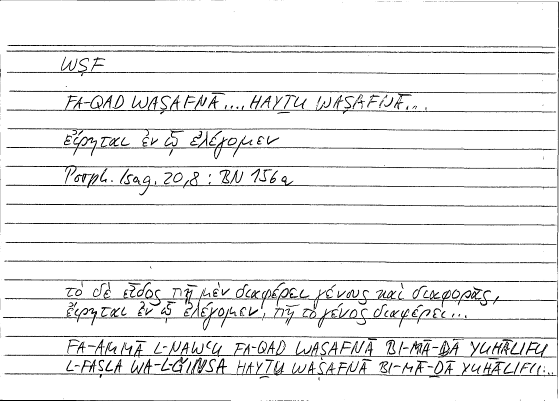 WṢF
FA-QAD WAṢAFNĀ..., ḤAYṮU WAṢAFNĀ...
εἴρηται ἐν ᾧ ἐλέγομεν
Porph. Isag. 20,8 : BN 156a
τὸ δὲ εἶδος πῇ μὲν διαφέρει γένους καὶ διαφορᾶς,
εἴρηται ἐν ᾧ ἐλέγομεν, πῇ τὸ γένος διαφέρει...
FA-AMMĀ L-NAWʿU FA-QAD WAṢAFNĀ BI-MĀ-ḎĀ YUḪĀLIFU
L-FAṢLA WA-L-ǦINSA ḤAYṮU WAṢAFNĀ BI-MĀ-ḎĀ YUḪĀLIFU...